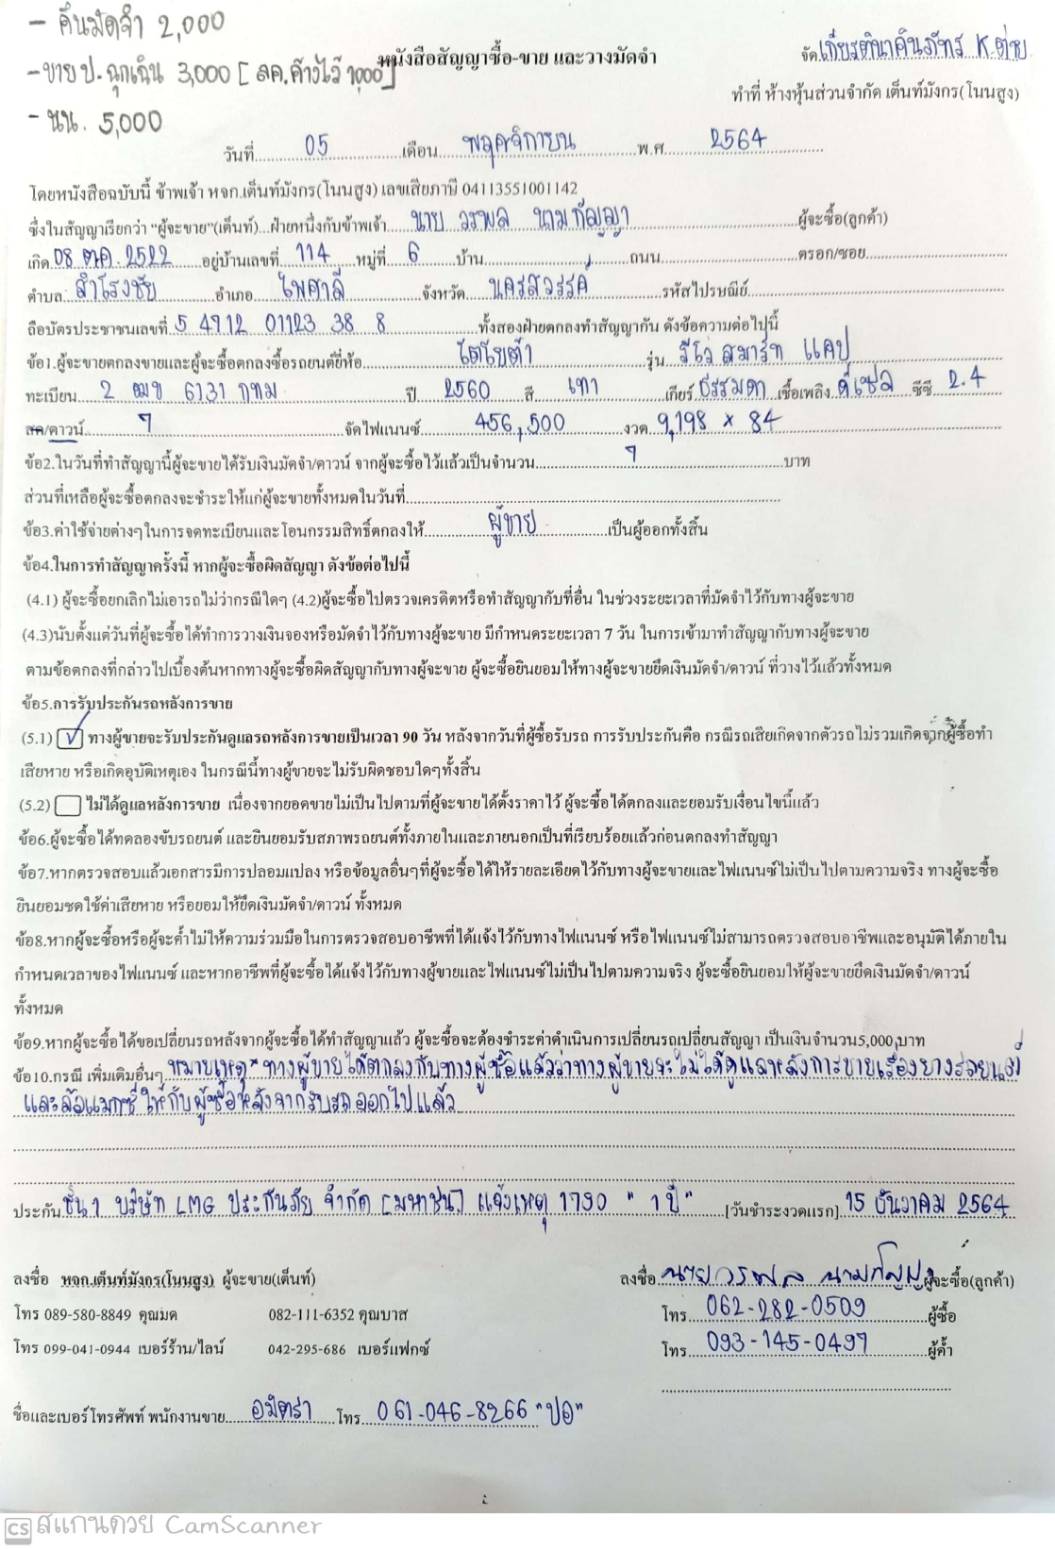 - คืนมัดจำ 2,000
-ขาย ป. ฉุกเฉิน 3,000 [ ลค.ค้างไว้ 1,000]
- นน. 5,000
หนังสือสัญญาซื้อ-ขาย และวางมัดจำ
จัด เกียรตินาคินภัทร K.ต่าย
ทำที่ ห้างหุ้นส่วนจำกัด เต็นท์มังกร(โนนสูง)
วันที่ 05 เดือน พฤศจิกายน พ.ศ. 2564
โดยหนังสือฉบับนี้ ข้าพเจ้า หจก.เต็นท์มังกร(โนนสูง) เลขเสียภาษี 04113551001142
ซึ่งในสัญญาเรียกว่า "ผู้จะขาย"(เต็นท์)...ฝ่ายหนึ่งกับข้าพเจ้า นาย วรพล นามกัญญา ผู้จะซื้อ(ลูกค้า)
เกิด 08 ตค. 2522 อยู่บ้านเลขที่ 114 หมู่ที่ 6 บ้าน ถนน ตรอก/ซอย
ตำบล สำโรงชัย อำเภอ ไพศาลี จังหวัด นครสวรรค์ รหัสไปรษณีย์
ถือบัตรประชาชนเลขที่ 5 4912 01123 38 8 ทั้งสองฝ่ายตกลงทำสัญญากัน ดังข้อความต่อไปนี้
ข้อ1.ผู้จะขายตกลงขายและผู้จะซื้อตกลงซื้อรถยนต์ยี่ห้อ โตโยต้า รุ่น รีโว่ สมาร์ท แคป
ทะเบียน 2 ฒข 6131 กทม ปี 2560 สี เทา เกียร์ ธรรมดา เชื้อเพลิง ดีเซล ซีซี 2.4
สด/ดาวน์ 7 จัดไฟแนนซ์ 456,500 งวด 9,198 x 84
ข้อ2.ในวันที่ทำสัญญานี้ผู้จะขายได้รับเงินมัดจำ/ดาวน์ จากผู้จะซื้อไว้แล้วเป็นจำนวน 7 บาท
ส่วนที่เหลือผู้จะซื้อตกลงจะชำระให้แก่ผู้จะขายทั้งหมดในวันที่
ข้อ3.ค่าใช้จ่ายต่างๆในการจดทะเบียนและโอนกรรมสิทธิ์ตกลงให้ ผู้ขาย เป็นผู้ออกทั้งสิ้น
ข้อ4.ในการทำสัญญาครั้งนี้ หากผู้จะซื้อผิดสัญญา ดังข้อต่อไปนี้
(4.1) ผู้จะซื้อยกเลิกไม่เอารถไม่ว่ากรณีใดๆ (4.2)ผู้จะซื้อไปตรวจเครดิตหรือทำสัญญากับที่อื่น ในช่วงระยะเวลาที่มัดจำไว้กับทางผู้จะขาย
(4.3)นับตั้งแต่วันที่ผู้จะซื้อได้ทำการวางเงินจองหรือมัดจำไว้กับทางผู้จะขาย มีกำหนดระยะเวลา 7 วัน ในการเข้ามาทำสัญญากับทางผู้จะขาย
ตามข้อตกลงที่กล่าวไปเบื้องต้นหากทางผู้จะซื้อผิดสัญญากับทางผู้จะขาย ผู้จะซื้อยินยอมให้ทางผู้จะขายยึดเงินมัดจำ/ดาวน์ ที่วางไว้แล้วทั้งหมด
ข้อ5.การรับประกันรถหลังการขาย
(5.1) ✓ ทางผู้ขายจะรับประกันดูแลรถหลังการขายเป็นเวลา 90 วัน หลังจากวันที่ผู้ซื้อรับรถ การรับประกันคือ กรณีรถเสียเกิดจากตัวรถไม่รวมเกิดจากผู้ซื้อทำ
เสียหาย หรือเกิดอุบัติเหตุเอง ในกรณีนี้ทางผู้ขายจะไม่รับผิดชอบใดๆทั้งสิ้น
(5.2) ไม่ได้ดูแลหลังการขาย เนื่องจากยอดขายไม่เป็นไปตามที่ผู้จะขายได้ตั้งราคาไว้ ผู้จะซื้อได้ตกลงและยอมรับเงื่อนไขนี้แล้ว
ข้อ6.ผู้จะซื้อได้ทดลองขับรถยนต์ และยินยอมรับสภาพรถยนต์ทั้งภายในและภายนอกเป็นที่เรียบร้อยแล้วก่อนตกลงทำสัญญา
ข้อ7.หากตรวจสอบแล้วเอกสารมีการปลอมแปลง หรือข้อมูลอื่นๆที่ผู้จะซื้อได้ให้รายละเอียดไว้กับทางผู้จะขายและไฟแนนซ์ไม่เป็นไปตามความจริง ทางผู้จะซื้อ
ยินยอมชดใช้ค่าเสียหาย หรือยอมให้ยึดเงินมัดจำ/ดาวน์ ทั้งหมด
ข้อ8.หากผู้จะซื้อหรือผู้จะค้ำไม่ให้ความร่วมมือในการตรวจสอบอาชีพที่ได้แจ้งไว้กับทางไฟแนนซ์ หรือไฟแนนซ์ไม่สามารถตรวจสอบอาชีพและอนุมัติได้ภายใน
กำหนดเวลาของไฟแนนซ์ และหากอาชีพที่ผู้จะซื้อได้แจ้งไว้กับทางผู้ขายและไฟแนนซ์ไม่เป็นไปตามความจริง ผู้จะซื้อยินยอมให้ผู้จะขายยึดเงินมัดจำ/ดาวน์
ทั้งหมด
ข้อ9.หากผู้จะซื้อได้ขอเปลี่ยนรถหลังจากผู้จะซื้อได้ทำสัญญาแล้ว ผู้จะซื้อจะต้องชำระค่าดำเนินการเปลี่ยนรถเปลี่ยนสัญญา เป็นเงินจำนวน5,000บาท
ข้อ10.กรณี เพิ่มเติมอื่นๆ หมายเหตุ " ทางผู้ขายได้ตกลงกับทางผู้ซื้อแล้วว่าทางผู้ขายจะไม่ได้ดูแลหลังการขายเรื่องยางรถยนต์
และล้อแมกซ์ ให้กับผู้ซื้อหลังจากรับรถออกไปแล้ว
ประกัน ชั้น 1 บริษัท LMG ประกันภัย จำกัด [มหาชน] แจ้งเหตุ 1790 " 1 ปี " [วันชำระงวดแรก] 15 ธันวาคม 2564
ลงชื่อ หจก.เต็นท์มังกร(โนนสูง) ผู้จะขาย(เต็นท์) ลงชื่อ นายวรพล นามกัญญา ผู้จะซื้อ(ลูกค้า)
โทร 089-580-8849 คุณมด 082-111-6352 คุณบาส โทร 062-282-0509 ผู้ซื้อ
โทร 099-041-0944 เบอร์ร้าน/ไลน์ 042-295-686 เบอร์แฟกซ์ โทร 093-145-0497 ผู้ค้ำ
ชื่อและเบอร์โทรศัพท์ พนักงานขาย อมิตรา โทร 061-046-8266 "ปอ"
CS สแกนด้วย CamScanner